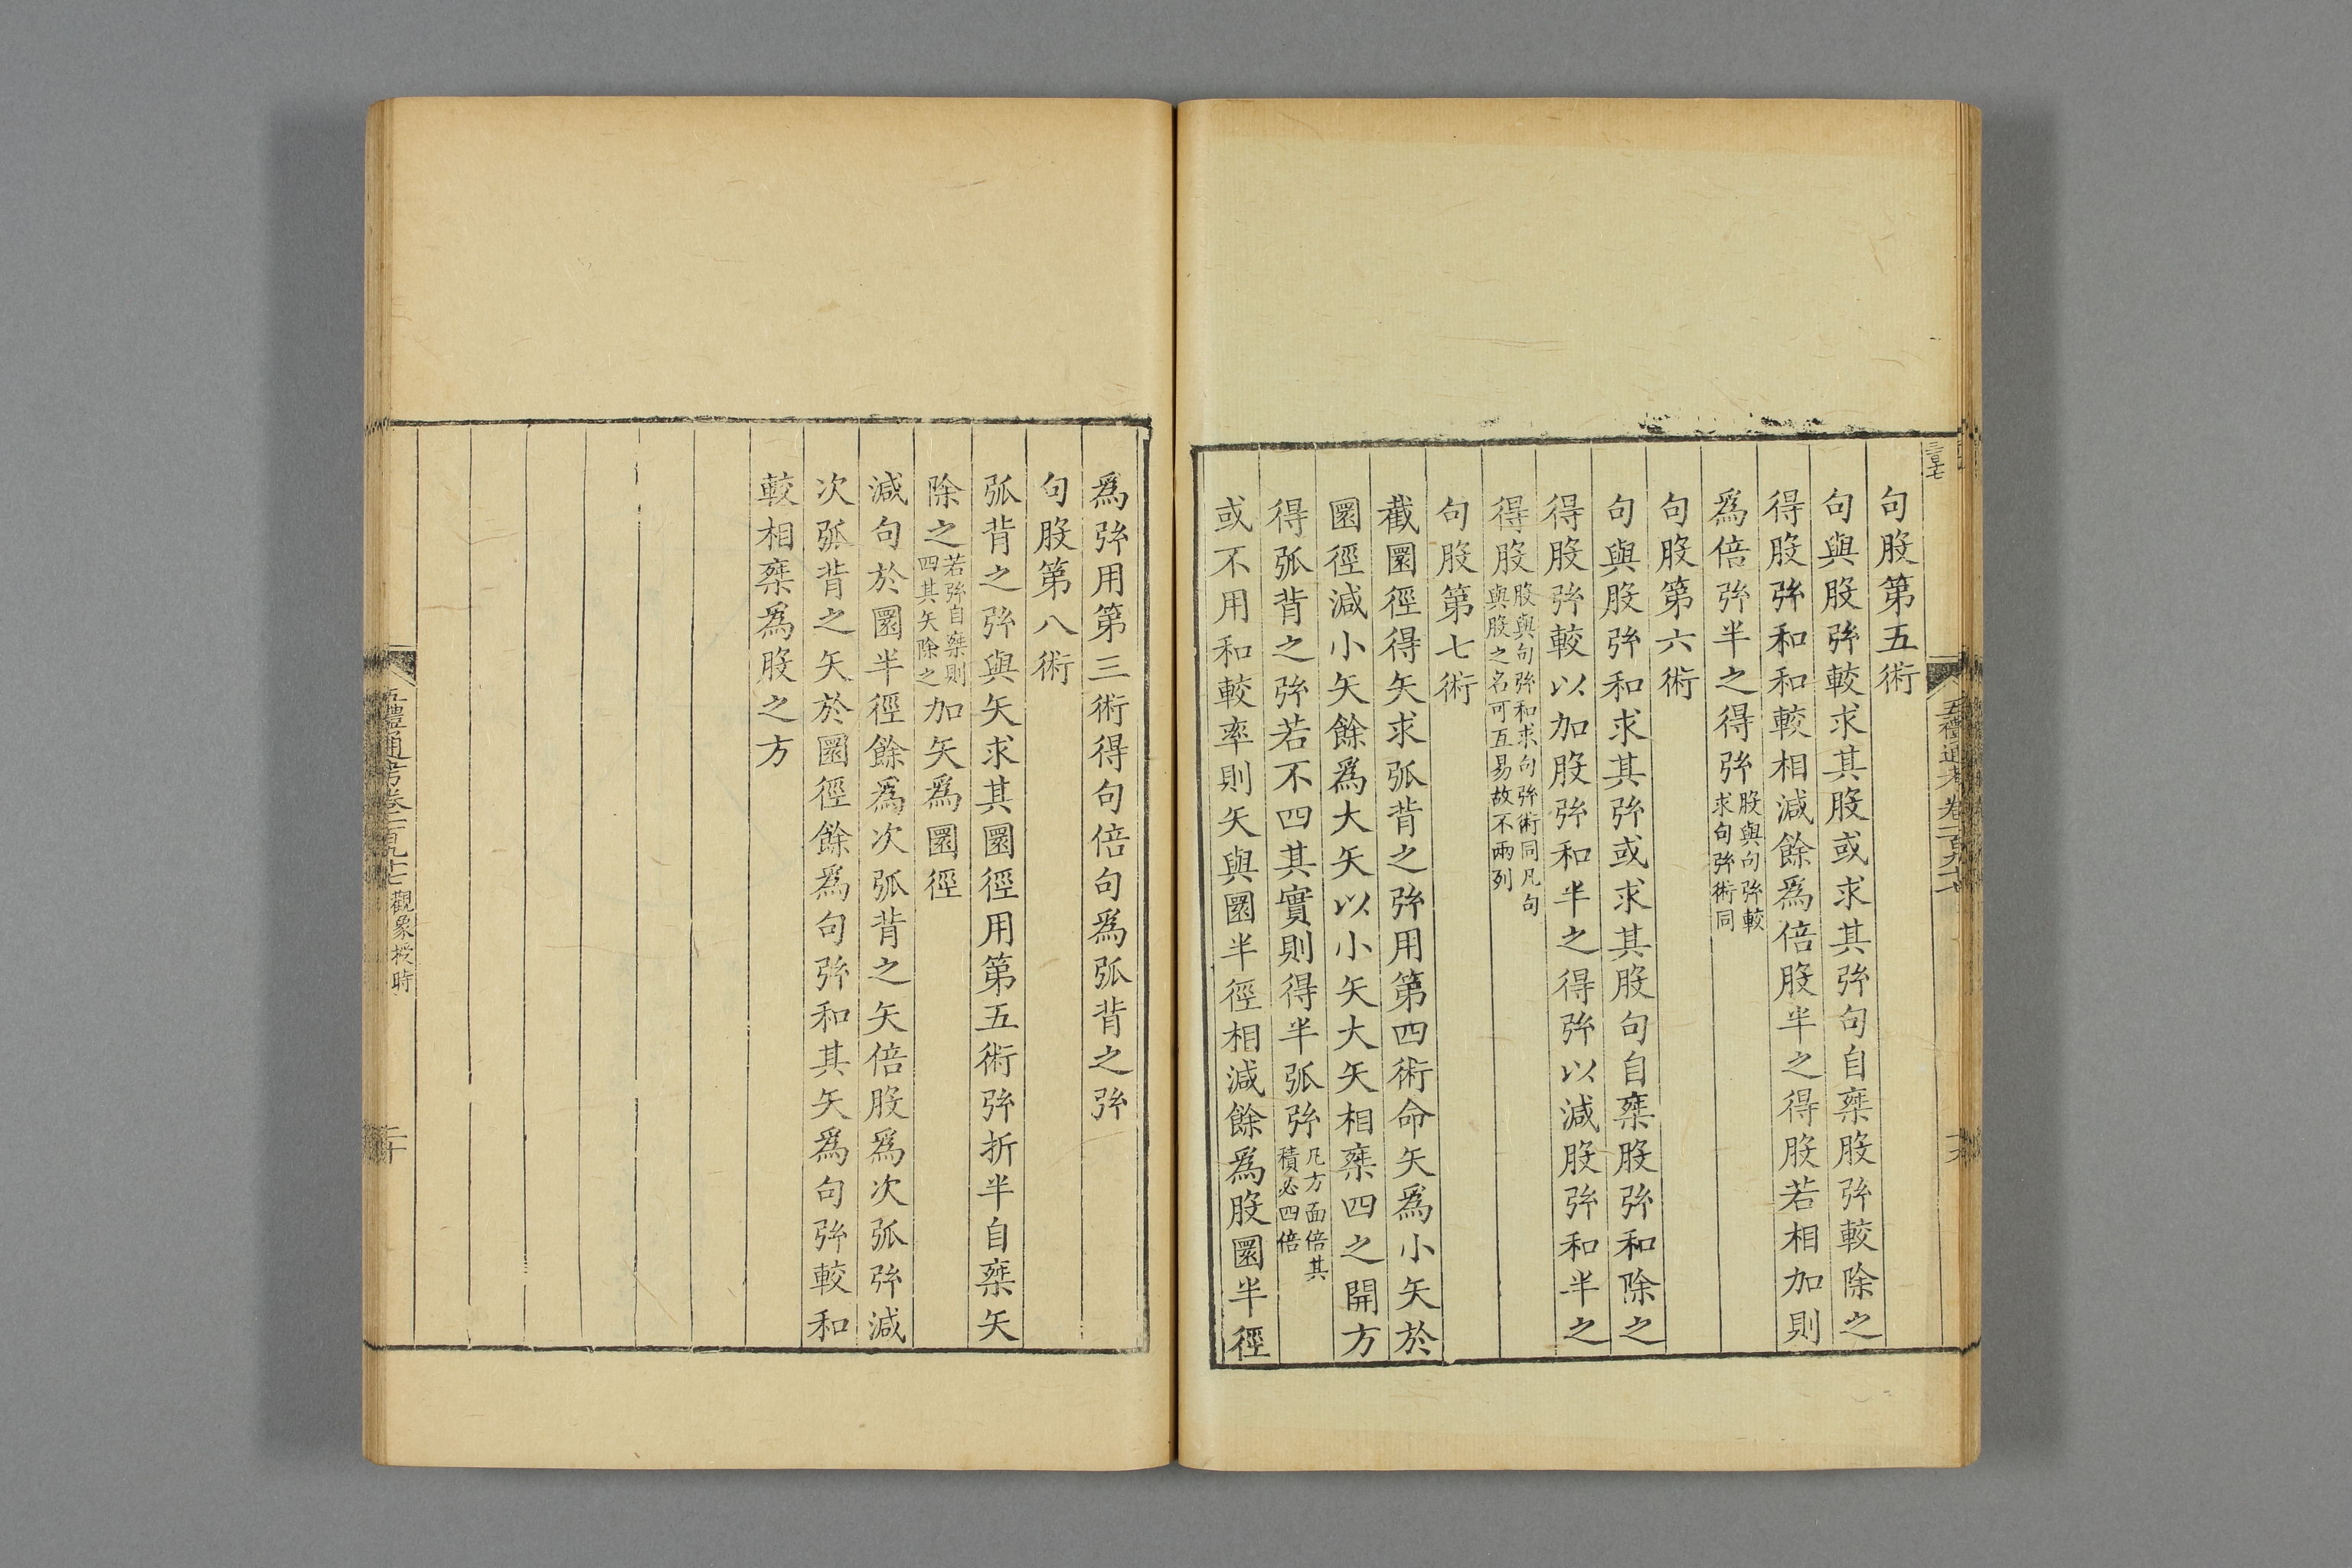 句股第五術
句與股弥較求其股或求其弥句自椉股弥較除之
得股弥和和較相減餘爲倍股半之得股若相加則
爲倍弥半之得弥股與句弥較求句弥術同
句股第六術
句與股弥和求其弥或求其股句自椉股弥和除之
得股弥較以加股弥和半之得弥以減股弥和半之
得股股與句弥和求句弥術同凡句與股之名可互易故不兩列
句股第七術
截圜徑得矢求弧背之弥用第四術命矢爲小矢於
圜徑減小矢餘爲大矢以小矢大矢相椉四之開方
得弧背之弥若不四其實則得半弧弥凡方面倍其積必四倍
或不用和較率則矢與圜半徑相減餘爲股圜半徑
爲弥用第三術得句倍句爲弧背之弥
句股第八術
弧背之弥與矢求其圜徑用第五術弥折半自椉矢
除之若弥自椉則四其矢除之加矢爲圜徑
減句於圜半徑餘爲次弧背之矢倍股爲次弧弥減
次弧背之矢於圜徑餘爲句弥和其矢爲句弥較和
較相椉爲股之方
五禮通考卷一百九十七 觀象授時
二十